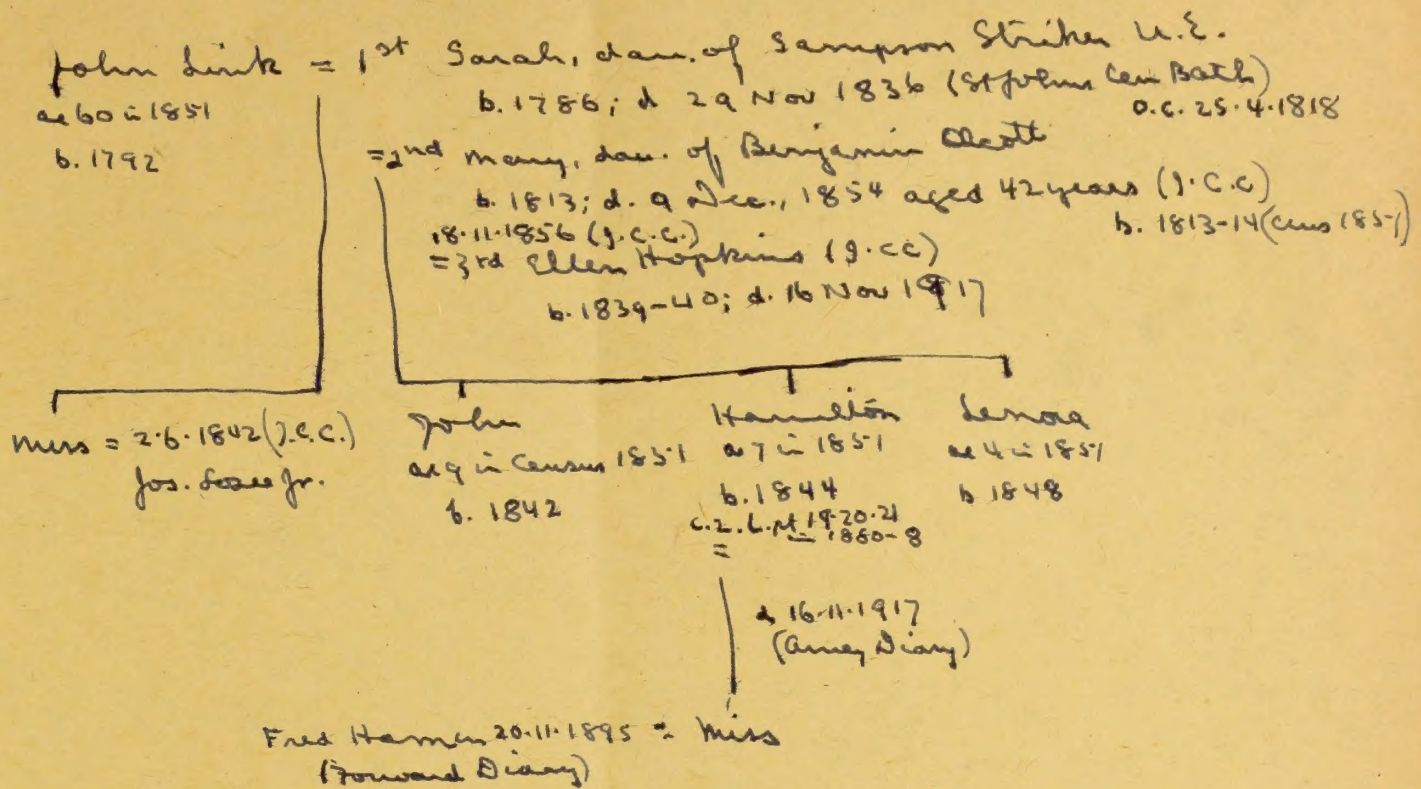 John Link = 1st Sarah, dau. of Sampson Striker U.E.
ae 60 in 1851
b. 1786; d 29 Nov 1836 (St Johns Cem Bath)
O.C. 25.4.1818
b. 1792
=2nd Mary, dau. of Benjamin Olcott
b. 1813; d. 9 Dec., 1854 aged 42 years (J.C.C)
b. 1813-14 (Cens 1851)
18.11.1856 (J.C.C.)
=3rd Ellen Hopkins (J.CC)
b. 1839-40; d. 16 Nov 1917
Miss = 2.6.1842 (J.C.C.)
Jos. Losee Jr.
John
ae 9 in Census 1851
b. 1842
Hamilton
ae 7 in 1851
b. 1844
c.2. L. pt 19.20.21
in 1880-8
=
Lenora
ae 4 in 1851
b 1848
d 16.11.1917
(Amey Diary)
Fred 20.11.1895 = Miss
(Forward Diary)